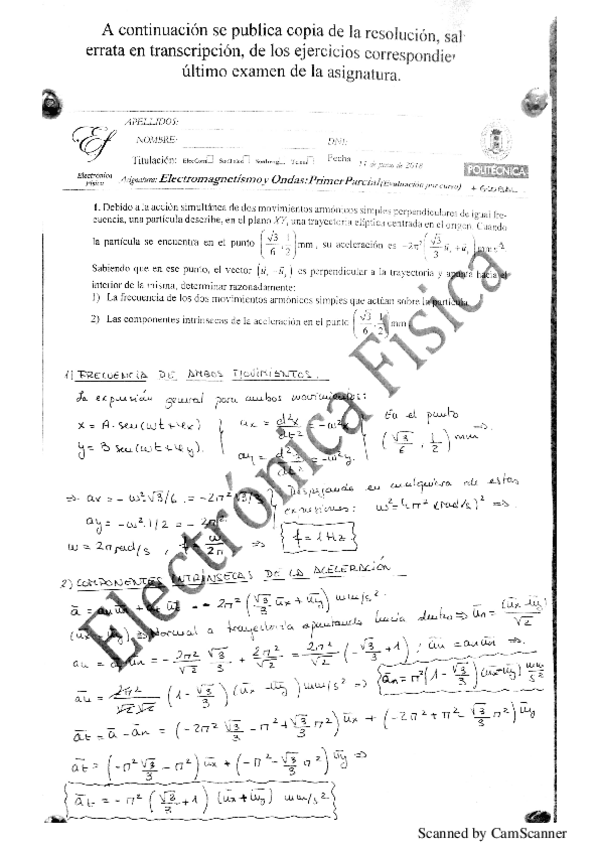 A continuación se publica copia de la resolución, sal
errata en transcripción, de los ejercicios correspondie
último examen de la asignatura.
APELLIDOS:
NOMBRE: DNI:
Titulación: Fecha 2018
Electrónica Física
Asignatura: Electromagnetismo y Ondas: Primer Parcial (Evaluación por curso)
POLITÉCNICA
1. Debido a la acción simultánea de dos movimientos armónicos simples perpendiculares de igual fre-
cuencia, una partícula describe, en el plano XY, una trayectoria elíptica centrada en el origen. Cuando
la partícula se encuentra en el punto (√3/6, 1/2) mm, su aceleración es -2π²(√3/3 ūx + ūy) mm s⁻²
Sabiendo que en ese punto, el vector (ūx - ūy) es perpendicular a la trayectoria y apunta hacia el
interior de la misma, determinar razonadamente:
1) La frecuencia de los dos movimientos armónicos simples que actúan sobre la partícula.
2) Las componentes intrínsecas de la aceleración en el punto (√3/6, 1/2) mm
1) FRECUENCIA DE AMBOS MOVIMIENTOS.
La expresión general para ambos movimientos:
x = A·sen(ωt+φx) ax = d²x/dt² = -ω²x En el punto
y = B sen(ωt+φy). ay = d²y/dt² = -ω²y. (√3/6, 1/2) mm ⇒
⇒ ax = -ω²·√3/6 = -2π²√3/3 Despejando en cualquiera de estas
ay = -ω²·1/2 = -2π² expresiones: ω² = 4π² (rad/s)² ⇒
ω = 2π rad/s, f = ω/2π ⇒ f = 1 Hz
2) COMPONENTES INTRÍNSECAS DE LA ACELERACIÓN
= -2π² (√3/3 ūx + ūy) mm/s²
(ūx - ūy) ⇒ Normal a trayectoria apuntando hacia dentro ⇒ ūn = (ūx - ūy)/√2
an = = -2π²/√2 · √3/3 + 2π²/√2 = 2π²/√2 (-√3/3 + 1); ān = an ūn ⇒
ān = 2π²/√2√2 (1 - √3/3) (ūx - ūy) mm/s² ⇒ ān = π² (1 - √3/3) (ūx - ūy) mm/s²
āt = ā - ān = (-2π² √3/3 - π² + √3/3 π²) ūx + (-2π² + π² - √3/3 π²) ūy
āt = (-π² √3/3 - π²) ūx + (-π² - √3/3 π²) ūy ⇒
āt = -π² (√3/3 + 1) (ūx + ūy) mm/s²
Electrónica Física
Scanned by CamScanner